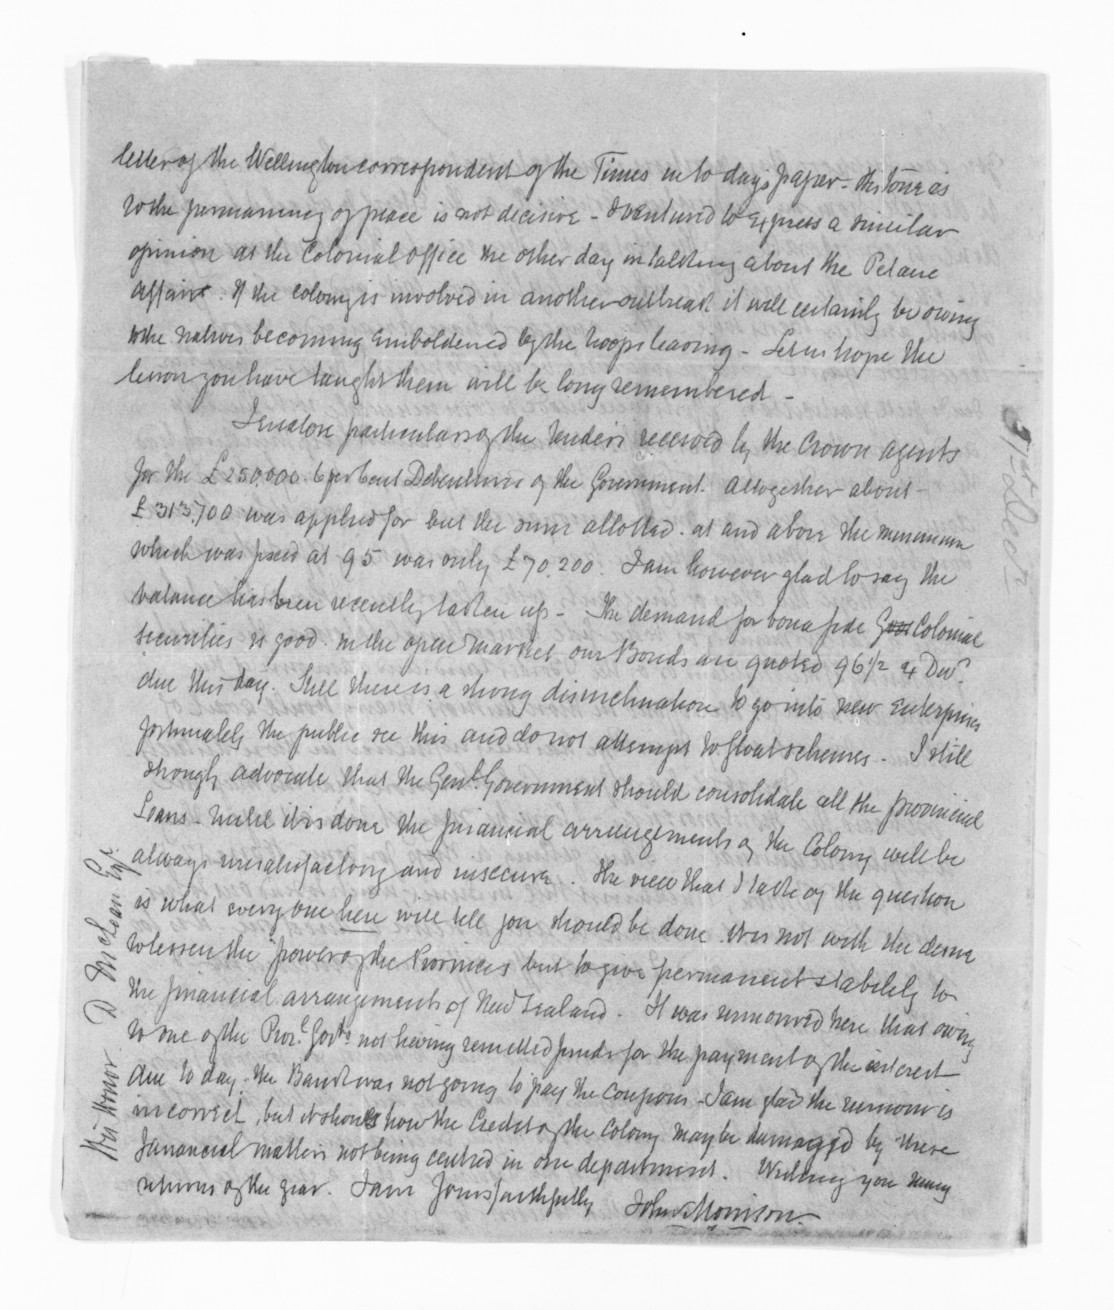 letter of the Wellington correspondent of the Times in to days paper - his tone as
to the permanency of peace is not decisive - I ventured to express a similar
opinion at the Colonial office the other day in talking about the Petane
affair. If the colony is involved in another outbreak it will certainly be owing
to the natives becoming emboldened by the troops leaving - Let us hope the
lesson you have taught them will be long remembered -
I enclose particulars of the tenders received by the Crown Agents
for the £250,000. 6 per Cent Debentures of the Government. Altogether about -
£313,700 was applied for but the sum allotted. at and above the minimum
which was fixed at 95 was only £70,200. I am however glad to say the
balance has been recently taken up - The demand for bona fide Colonial
Securities is good. In the open market our Bonds are quoted 96½ ex Divd.
due this day. Still there is a strong disinclination to go into new enterprises
fortunately the public see this and do not attempt to float schemes - I still
strongly advocate that the Genl. Government should consolidate all the provincial
Loans - Until it is done the financial arrangements of the Colony will be
always unsatisfactory and insecure. The view that I take of the question
is what every one here will tell you should be done. It is not with the desire
to lessen the power of the Provinces but to give permanent stability to
the financial arrangements of New Zealand. It was rumoured here that owing
to one of the Provl. Govts. not having remitted funds for the payment of the interest
due to day. the Bank was not going to pay the coupons - I am glad the rumour is
incorrect, but it shows how the Credit of the Colony may be damaged by these
financial matters not being centred in one department. Wishing you many
returns of the year. I am Yours faithfully John Morrison
His Honor D McLean Esqr.
31st Decr